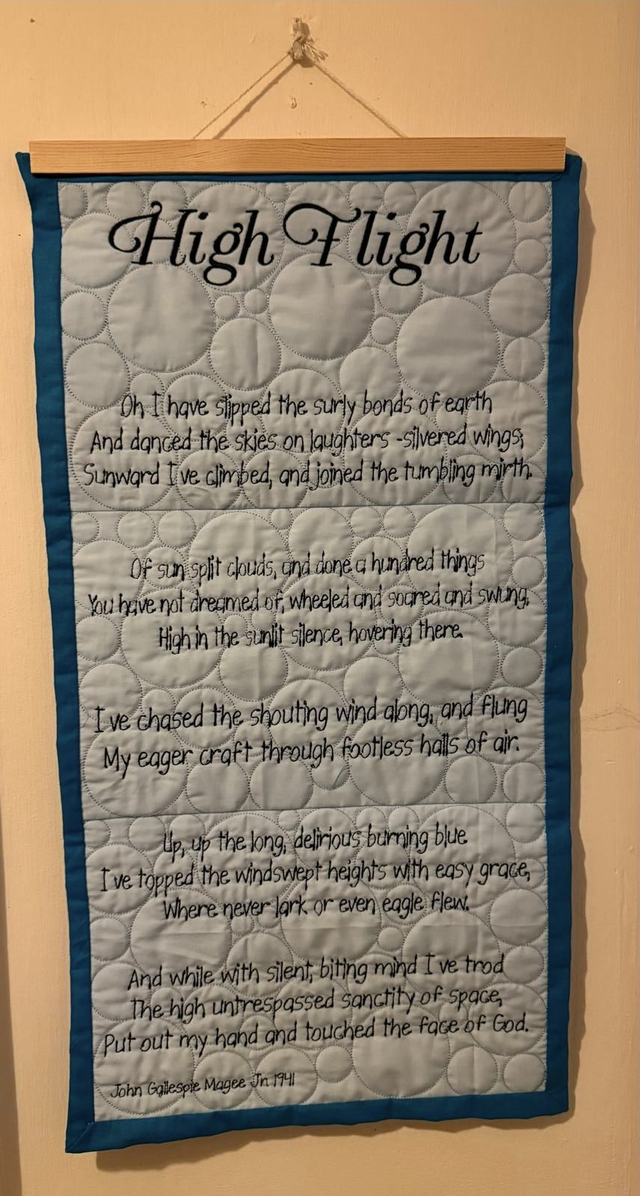 High Flight
Oh I have slipped the surly bonds of earth
And danced the skies on laughters -silvered wings;
Sunward I've climbed, and joined the tumbling mirth.
Of sun split clouds, and done a hundred things
You have not dreamed of, wheeled and soared and swung,
High in the sunlit silence, hovering there.
I've chased the shouting wind along, and flung
My eager craft through footless halls of air.
Up, up the long, delirious burning blue
I've topped the windswept heights with easy grace,
Where never lark or even eagle flew.
And while with silent, biting mind I've trod
The high untrespassed sanctity of space,
Put out my hand and touched the face of God.
John Gillespie Magee Jn 1941